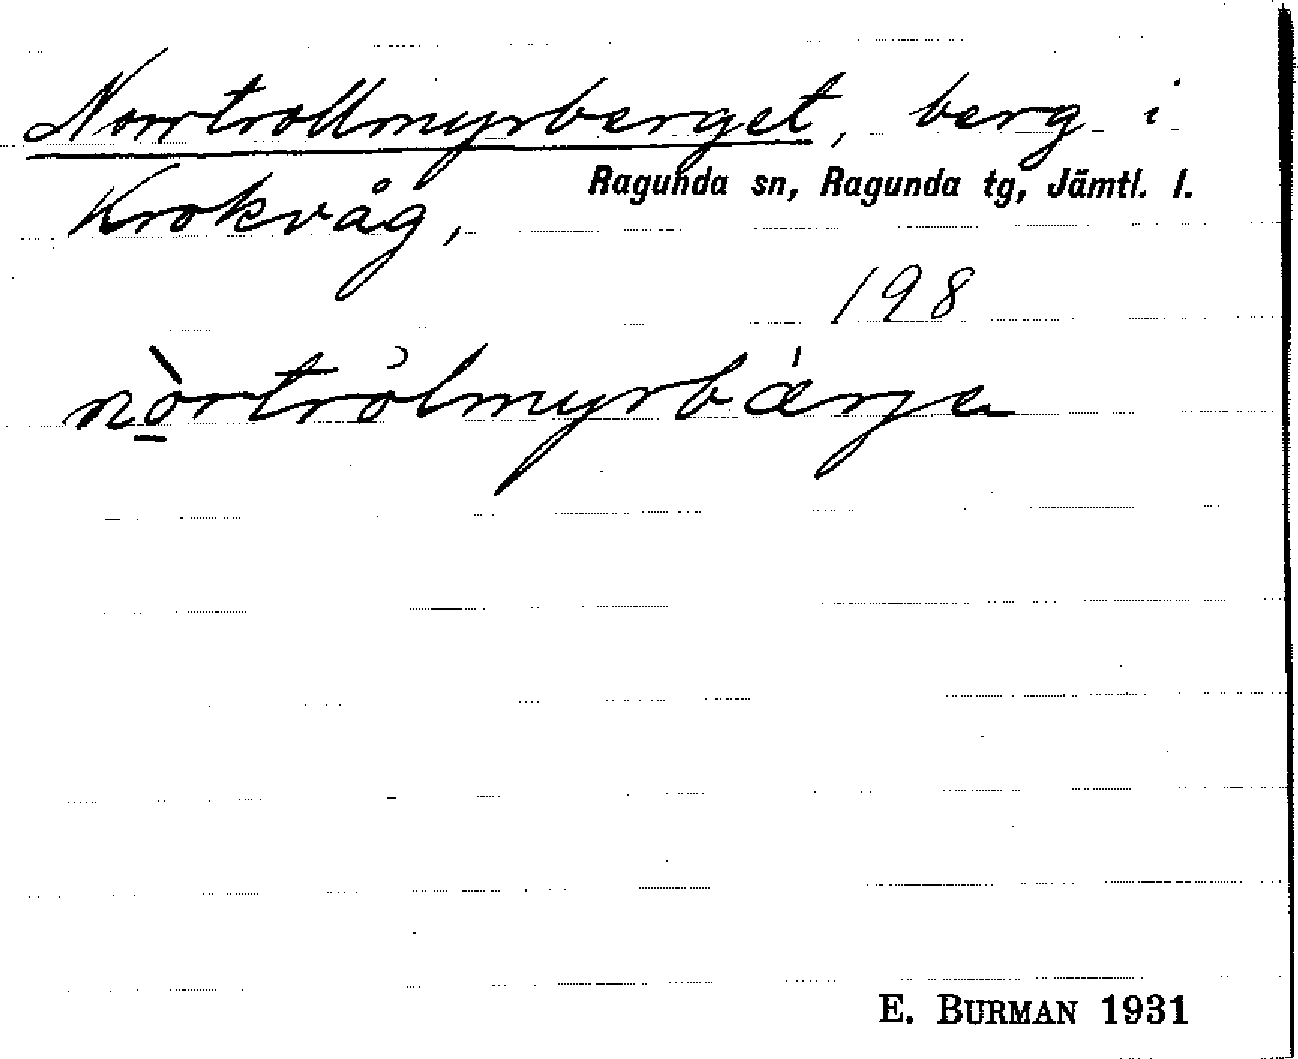 Norrtrollmyrberget, berg i
Krokvåg, Ragunda sn, Ragunda tg, Jämtl. l.
198
nòrtrólmyrbǽrjɐ
E. BURMAN 1931